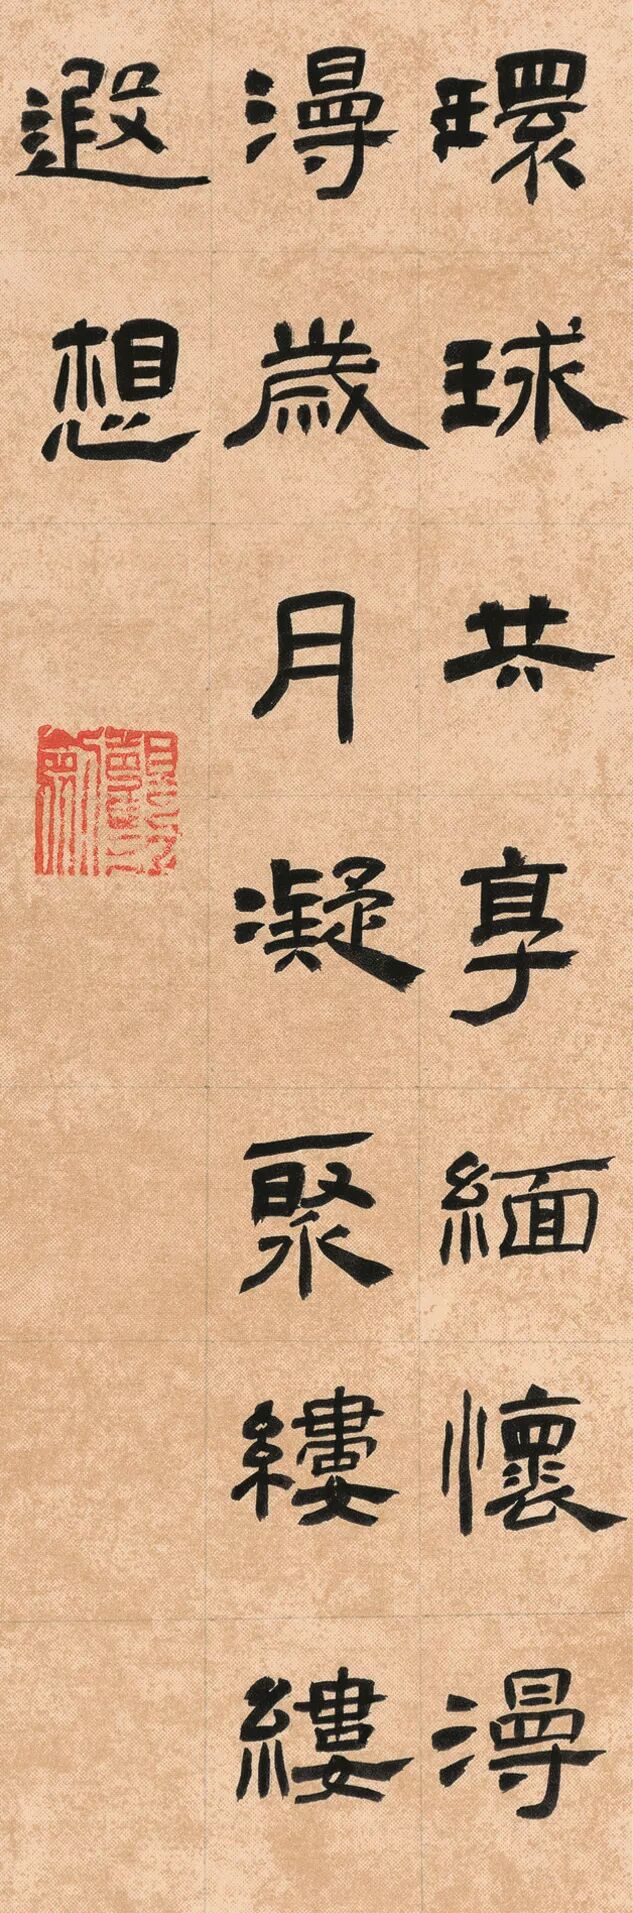 環球共享緬懷漫
漫歲月凝聚縷縷
遐想